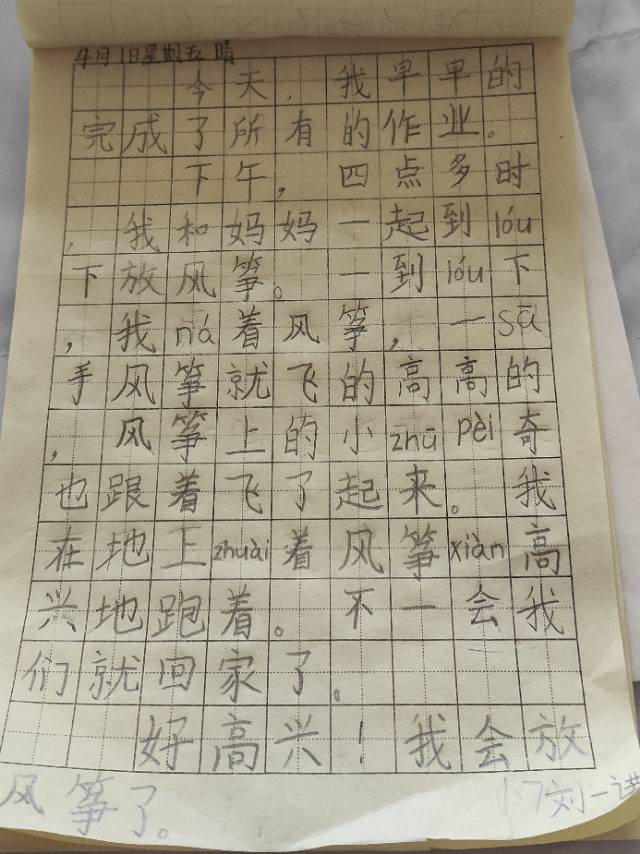 4月1日星期五 晴
今天,我早早的
完成了所有的作业。
下午,四点多时
,我和妈妈一起到lóu
下放风筝。一到lóu下
,我ná着风筝,一sā
手风筝就飞的高高的
,风筝上的小zhū pèi奇
也跟着飞了起来。我
在地上zhuài着风筝xiàn高
兴地跑着。不一会我
们就回家了。
好高兴!我会放
风筝了。